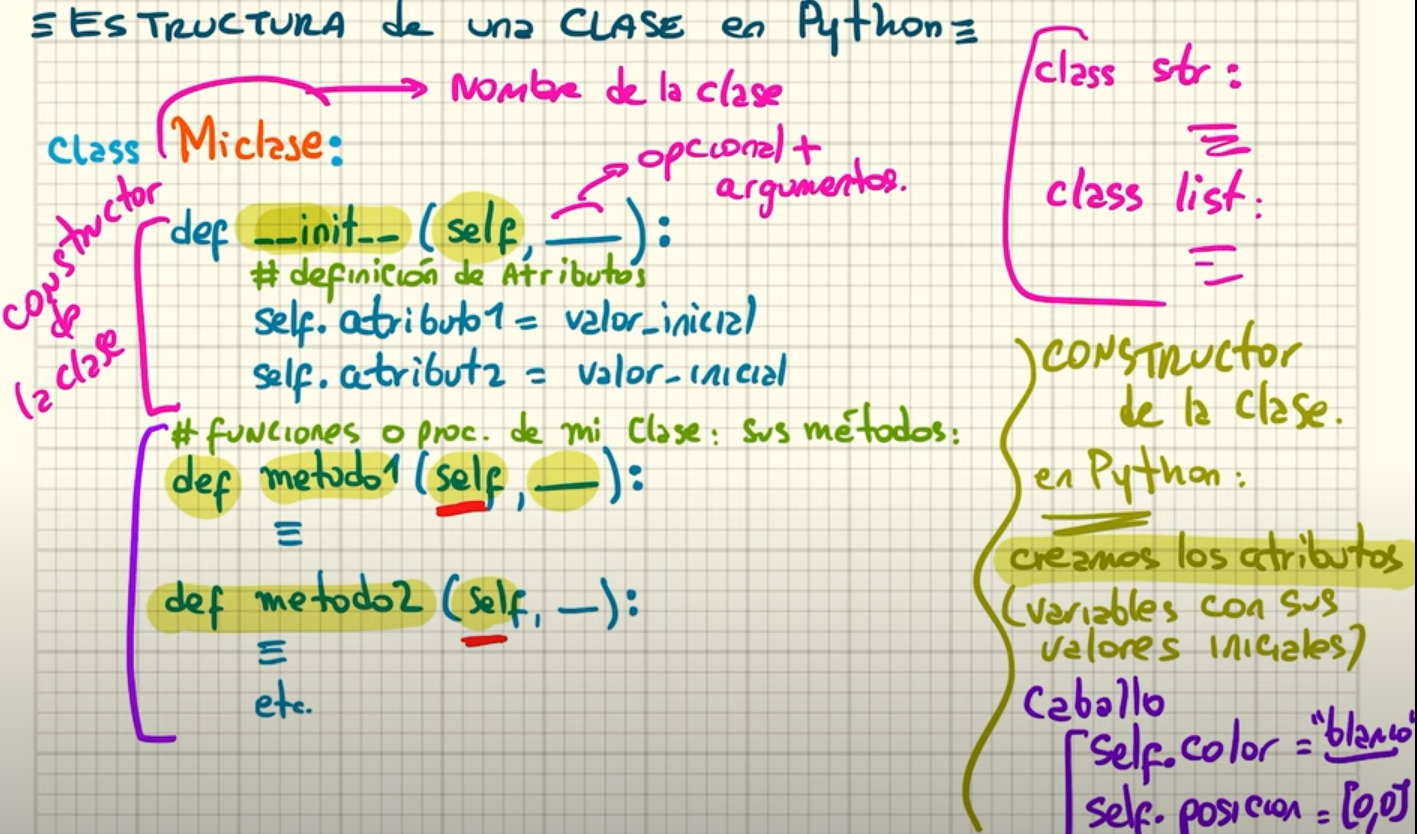 ≡ ESTRUCTURA de una CLASE en Python ≡
Nombre de la clase
class Miclase:
opcional +
argumentos.
constructor
de
la clase
def __init__ (self, ___):
# definición de Atributos
self.atributo1 = valor_inicial
self.atribut2 = valor_inicial
# funciones o proc. de mi Clase: sus métodos:
def metodo1 (self, ___):
≡
def metodo2 (self, _):
≡
etc.
class str:
class list:
constructor
de la clase.
en Python:
creamos los atributos
(variables con sus
valores iniciales)
Caballo
self.color = "blanco"
self.posicion = [0,0]